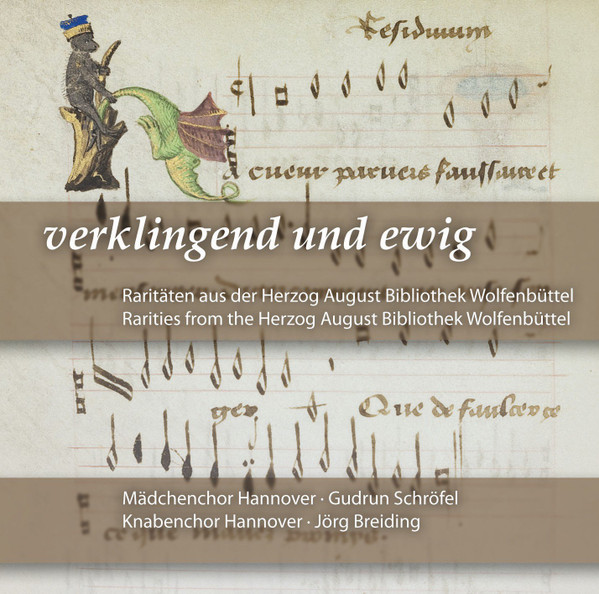 Residuum
A cueur parvers faulssaire et
verklingend und ewig
Raritäten aus der Herzog August Bibliothek Wolfenbüttel
Rarities from the Herzog August Bibliothek Wolfenbüttel
ger Que de faulcerye
Mädchenchor Hannover · Gudrun Schröfel
Knabenchor Hannover · Jörg Breiding
ce que